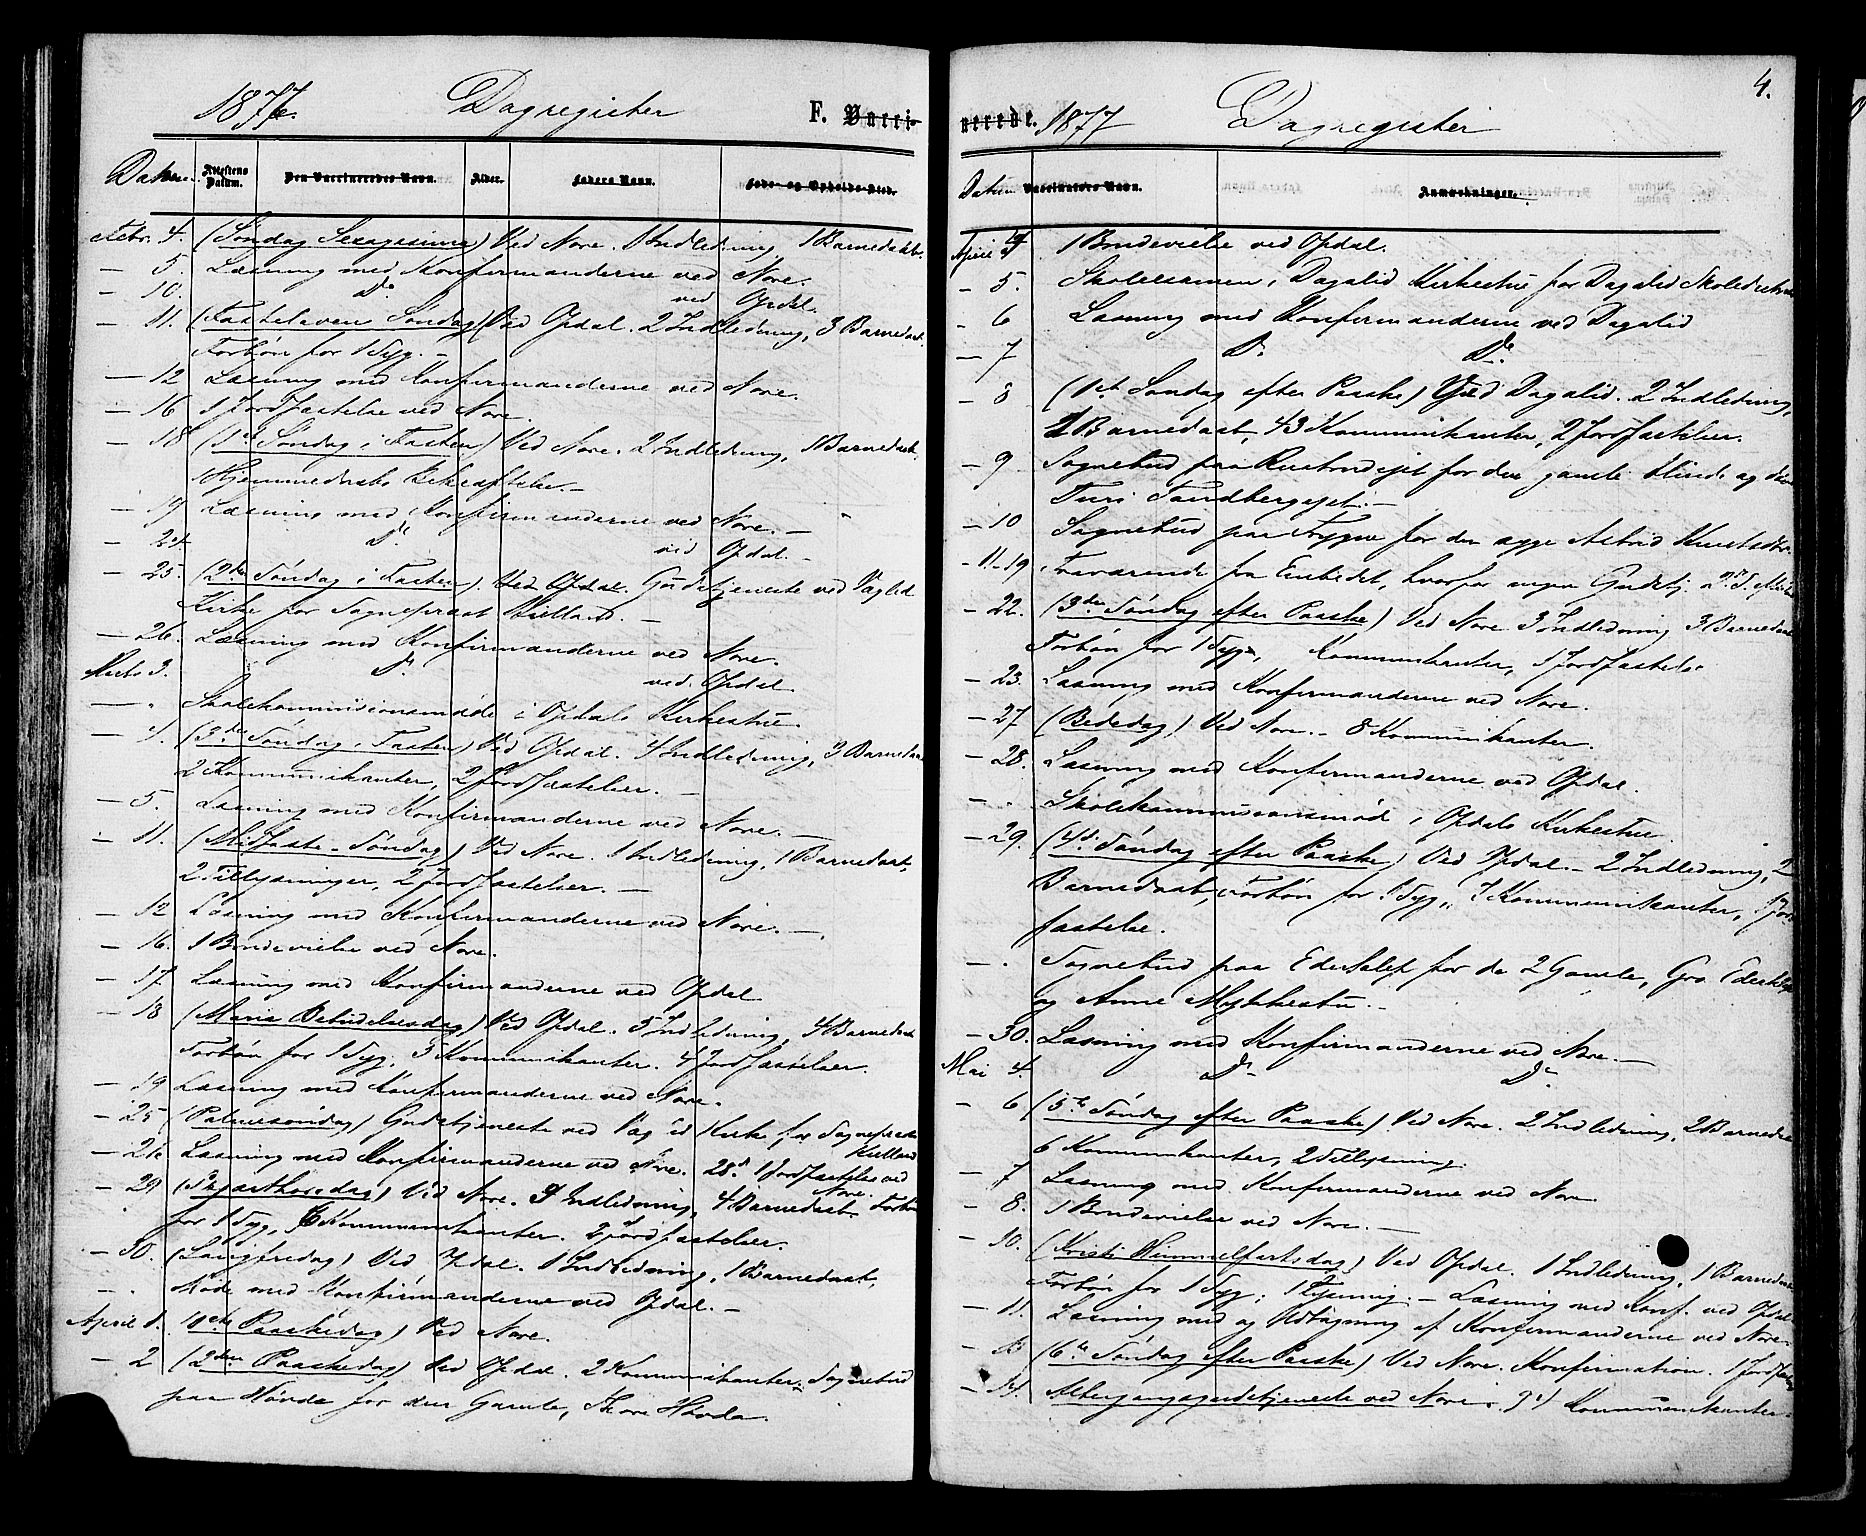 1877. Dagregister F. Vacci-
Datum. Attestens Datum. Den Vaccineredes Navn. Alder. Faders Navn. Føde- og Opholds-Sted.
Febr. 4. (Søndag Sexagesima) Ved Nore. 1 Indledning, 1 Barnedaab.
— 5. Læsning med Konfirmanderne ved Nore.
— 10. Do ved Opdal.
— 11. (Fastelavens Søndag) Ved Opdal. 2 Indledning, 3 Barnedaab.
Forbøn for 1 Syg. —
— 12 Læsning med Konfirmanderne ved Nore.
— 16 1 Jordfæstelse ved Nore.
— 18 (1ste Søndag i Fasten) Ved Nore. 2 Indledning, 1 Barnedaab.
Hjemmedaabs Bekræftelse. —
— 19 Læsning med Konfirmanderne ved Nore. —
— 24 Do ved Opdal. —
— 25. (2den Søndag i Fasten). Ved Opdal. Gudstjeneste ved Vaglid
Kirke for Sognepræst Kielland. —
— 26. Læsning med Konfirmanderne ved Nore.
Marts 3. Do ved Opdal.
— " Skolekommisionsmøde i Opdals Kirkestue.
— 4. (3die Søndag i Fasten) Ved Opdal. 4 Indledning, 3 Barnedaab
2 Kommunikanter, 2 Jordfæstelser. —
— 5. Læsning med Konfirmanderne ved Nore. —
— 11. (Midfaste-Søndag) Ved Nore. 1 Indledning, 1 Barnedaab,
2 Tillysninger, 2 Jordfæstelser. —
— 12 Læsning med Konfirmanderne ved Nore. —
— 16. 1 Brudevielse ved Nore.
— 17 Læsning med Konfirmanderne ved Opdal
— 18 (Mariæ Bebudelsesdag) Ved Opdal. 5 Indledning, 4 Barnedaab
Forbøn for 1 Syg. 5 Kommunikanter. 4 Jordfæstelser.
— 19 Læsning med Konfirmanderne ved Nore.
— 25 (Palmesøndag) Gudstjeneste ved Vaglid Kirke for Sognepræst
Kielland
— 26 Læsning med Konfirmanderne ved Nore. 28de 1 Jordfæstelse ved
Nore.
— 29 (Skjærthorsdag) Ved Nore. Indledning, 4 Barnedaab. Forbøn
for 1 Syg, 6 Kommunikanter. 2 Jordfæstelser.
— 30. (Langfredag) Ved Opdal. 1 Indledning, 1 Barnedaab,
— . Møde med Konfirmanderne ved Opdal. —
April 1. 1ste Paaskedag) Ved Nore.
— 2 (2den Paaskedag) Ved Opdal. 2 Kommunikanter. Sognebud
paa Hovde for den Gamle, Thore Hovde.
4.
nerede. 1877 Dagregister
Datum Vaccinatørs Navn. Anmærkninger.
April 4 1 Brudevielse ved Opdal.
— 5. Skoleexamen i Dagalid Kirkestue for Dagalid
— 6 Læsning med Konfirmanderne ved Dagalid
— 7 Do Do
— 8 (1ste Søndag efter Paaske) Ved Dagalid. 2 Indledning,
2 Barnedaab, 43 Kommunikanter, 2 Jordfæstelser.
— 9 Sognebud paa for den gamle blinde og døve
Turi
— 10 Sognebud paa for den syge Astrid
— 11-19 Fraværende fra Embedet, hvorfor ingen Gudstj.
— 22. (3die Søndag efter Paaske) Ved Nore 3 Indledning 3 Barnedaab
Forbøn for 1 Syg, Kommunikanter, 1 Jordfæstelse
— 23. Læsning med Konfirmanderne ved Nore.
— 27 (Bededag) Ved Nore. — 8 Kommunikanter.
— 28. Læsning med Konfirmanderne ved Opdal.
— " Skolekommisionsmøde i Opdals Kirkestue
— 29. (4de Søndag efter Paaske) Ved Opdal. — 2 Indledning, 2
Barnedaab, Forbøn for 1 Syg, 7 Kommunikanter, 1 Jord-
fæstelse.
— . Sognebud paa for de 2 Gamle, Gro
og Anne
— 30. Læsning med Konfirmanderne ved Nore. —
Mai 4. Do Do
— 6 (5te Søndag efter Paaske) Ved Nore. 2 Indledning, 2 Barnedaab
6 Kommunikanter, 2 Tillysning.
— 7 Læsning med Konfirmanderne ved Nore
— 8. 1 Brudevielse ved Nore. —
— 10. (Kristi Himmelfartsdag) Ved Opdal. 1 Indledning, 1 Barnedaab
Forbøn for 1 Syg; 1 Lysning. — Læsning med Konf. ved Opdal
— 11. Læsning med og Udtagning af Konfirmanderne ved Nore.
— 13 (6te Søndag efter Paaske) Ved Nore. Konfirmation. 1 Jordfæstelse
— 14. Altergangsgudstjeneste ved Nore. Kommunikanter.